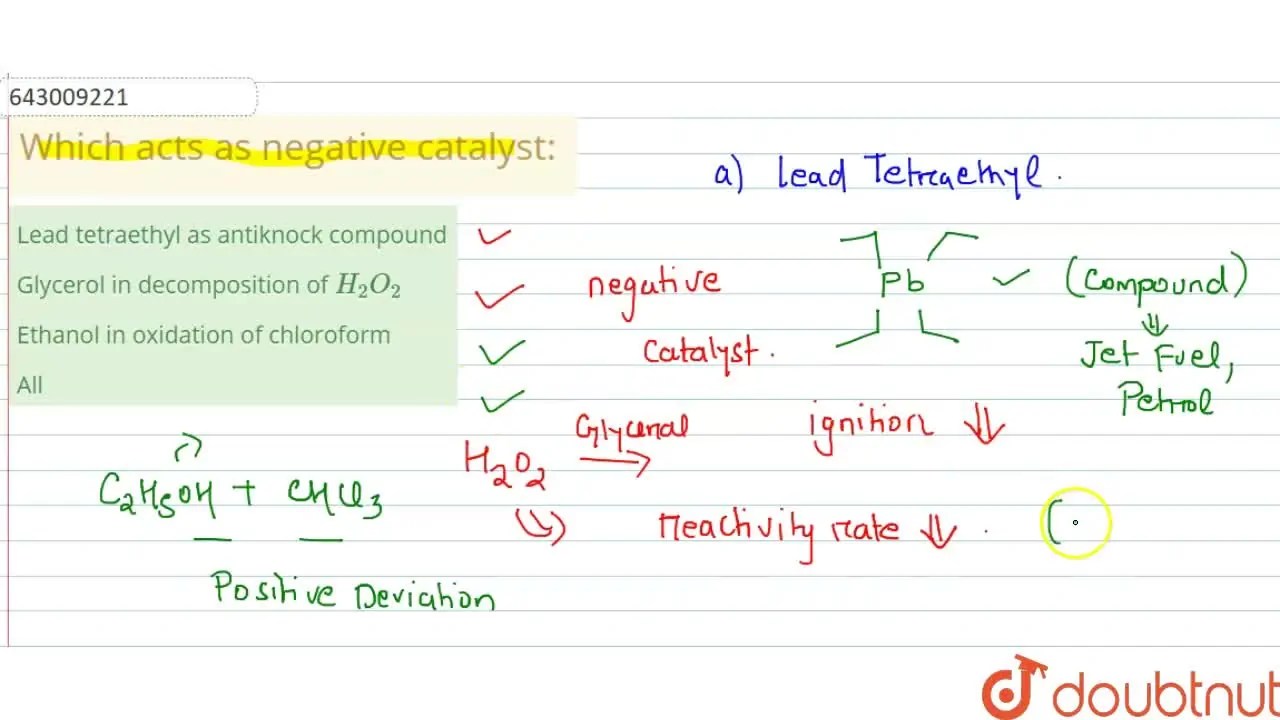 643009221
Which acts as negative catalyst:
Lead tetraethyl as antiknock compound
Glycerol in decomposition of H₂O₂
Ethanol in oxidation of chloroform
All
a) Lead Tetraethyl.
Pb
(Compound)
⇓
Jet Fuel,
Petrol
negative
Catalyst.
ignition ⇓
Glycerol
H₂O₂ →
reactivity rate ⇓.
(
C₂H₅OH + CHCl₃
Positive Deviation
doubtnut